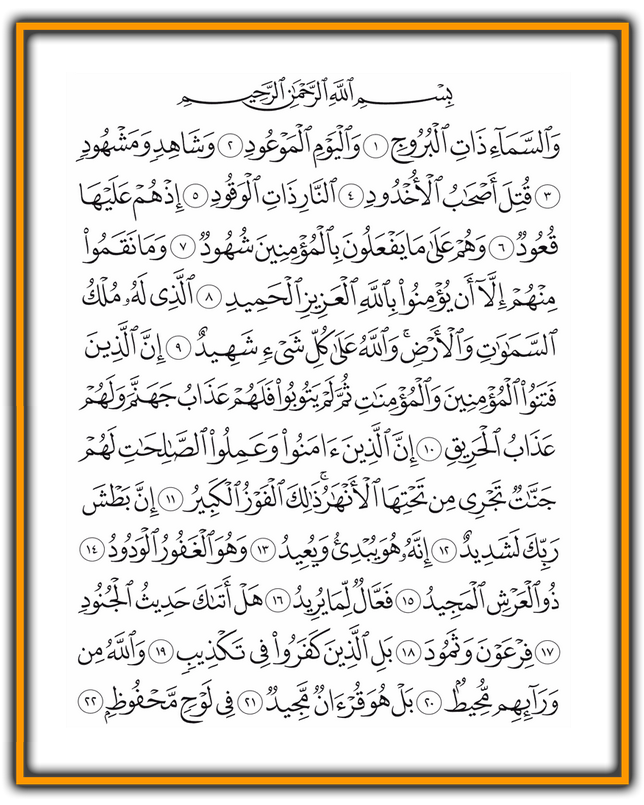 بِسْمِ ٱللَّهِ ٱلرَّحْمَٰنِ ٱلرَّحِيمِ
وَٱلسَّمَآءِ ذَاتِ ٱلْبُرُوجِ ١ وَٱلْيَوْمِ ٱلْمَوْعُودِ ٢ وَشَاهِدٍ وَمَشْهُودٍ
٣ قُتِلَ أَصْحَٰبُ ٱلْأُخْدُودِ ٤ ٱلنَّارِ ذَاتِ ٱلْوَقُودِ ٥ إِذْ هُمْ عَلَيْهَا
قُعُودٌ ٦ وَهُمْ عَلَىٰ مَا يَفْعَلُونَ بِٱلْمُؤْمِنِينَ شُهُودٌ ٧ وَمَا نَقَمُوا۟
مِنْهُمْ إِلَّآ أَن يُؤْمِنُوا۟ بِٱللَّهِ ٱلْعَزِيزِ ٱلْحَمِيدِ ٨ ٱلَّذِى لَهُۥ مُلْكُ
ٱلسَّمَٰوَٰتِ وَٱلْأَرْضِ ۚ وَٱللَّهُ عَلَىٰ كُلِّ شَىْءٍ شَهِيدٌ ٩ إِنَّ ٱلَّذِينَ
فَتَنُوا۟ ٱلْمُؤْمِنِينَ وَٱلْمُؤْمِنَٰتِ ثُمَّ لَمْ يَتُوبُوا۟ فَلَهُمْ عَذَابُ جَهَنَّمَ وَلَهُمْ
عَذَابُ ٱلْحَرِيقِ ١٠ إِنَّ ٱلَّذِينَ ءَامَنُوا۟ وَعَمِلُوا۟ ٱلصَّٰلِحَٰتِ لَهُمْ
جَنَّٰتٌ تَجْرِى مِن تَحْتِهَا ٱلْأَنْهَٰرُ ۚ ذَٰلِكَ ٱلْفَوْزُ ٱلْكَبِيرُ ١١ إِنَّ بَطْشَ
رَبِّكَ لَشَدِيدٌ ١٢ إِنَّهُۥ هُوَ يُبْدِئُ وَيُعِيدُ ١٣ وَهُوَ ٱلْغَفُورُ ٱلْوَدُودُ ١٤
ذُو ٱلْعَرْشِ ٱلْمَجِيدُ ١٥ فَعَّالٌ لِّمَا يُرِيدُ ١٦ هَلْ أَتَىٰكَ حَدِيثُ ٱلْجُنُودِ
١٧ فِرْعَوْنَ وَثَمُودَ ١٨ بَلِ ٱلَّذِينَ كَفَرُوا۟ فِى تَكْذِيبٍ ١٩ وَٱللَّهُ مِن
وَرَآئِهِم مُّحِيطٌۢ ٢٠ بَلْ هُوَ قُرْءَانٌ مَّجِيدٌ ٢١ فِى لَوْحٍ مَّحْفُوظٍۭ ٢٢